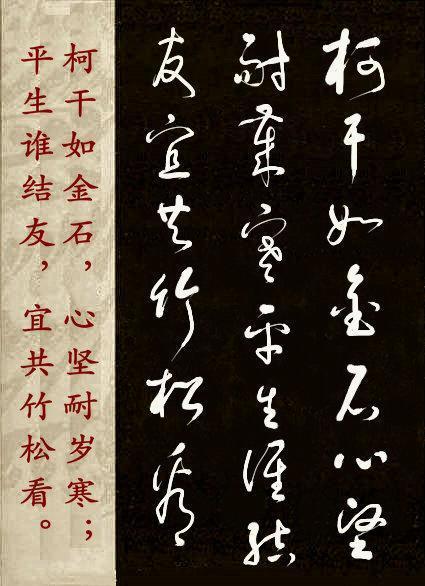 柯干如金石心坚
耐岁寒平生谁结
友宜共竹松看
柯干如金石，心坚耐岁寒；
平生谁结友，宜共竹松看。